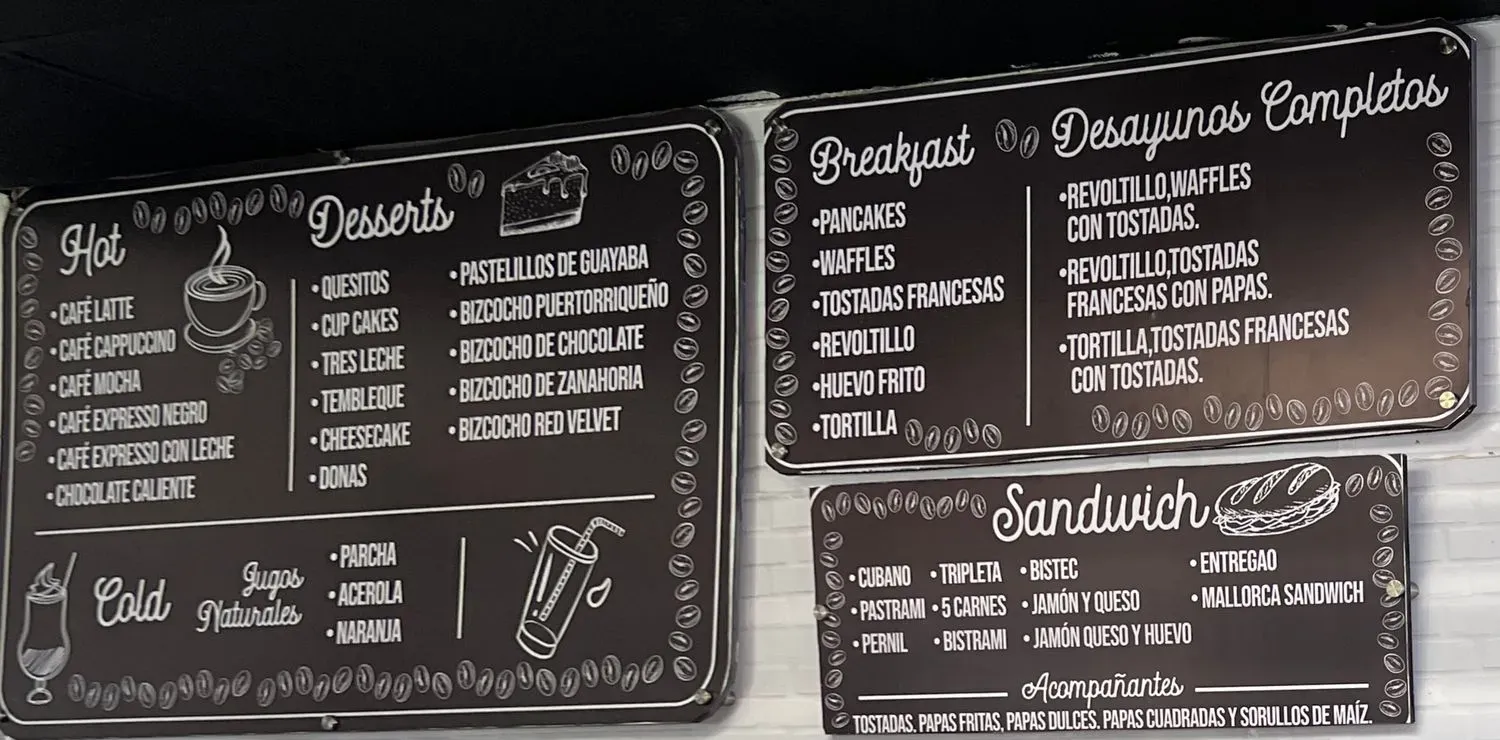 Hot
• CAFÉ LATTE
• CAFÉ CAPPUCCINO
• CAFÉ MOCHA
• CAFÉ EXPRESSO NEGRO
• CAFÉ EXPRESSO CON LECHE
• CHOCOLATE CALIENTE
Desserts
• QUESITOS
• CUP CAKES
• TRES LECHE
• TEMBLEQUE
• CHEESECAKE
• DONAS
• PASTELILLOS DE GUAYABA
• BIZCOCHO PUERTORRIQUEÑO
• BIZCOCHO DE CHOCOLATE
• BIZCOCHO DE ZANAHORIA
• BIZCOCHO RED VELVET
Cold
Jugos
Naturales
• PARCHA
• ACEROLA
• NARANJA
Breakfast
•PANCAKES
•WAFFLES
•TOSTADAS FRANCESAS
•REVOLTILLO
•HUEVO FRITO
•TORTILLA
Desayunos Completos
•REVOLTILLO,WAFFLES
CON TOSTADAS.
•REVOLTILLO,TOSTADAS
FRANCESAS CON PAPAS.
•TORTILLA,TOSTADAS FRANCESAS
CON TOSTADAS.
Sandwich
• CUBANO
• PASTRAMI
• PERNIL
• TRIPLETA
• 5 CARNES
• BISTRAMI
• BISTEC
• JAMÓN Y QUESO
• JAMÓN QUESO Y HUEVO
• ENTREGAO
• MALLORCA SANDWICH
Acompañantes
TOSTADAS. PAPAS FRITAS, PAPAS DULCES. PAPAS CUADRADAS Y SORULLOS DE MAÍZ.